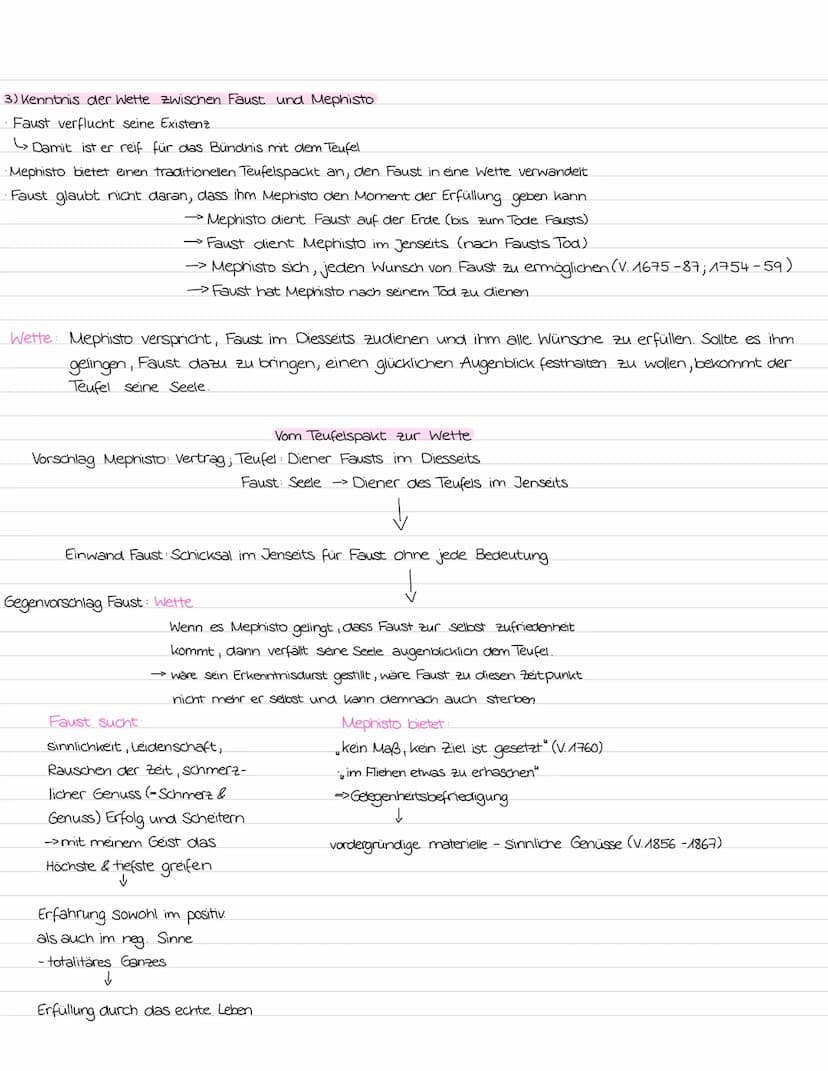 3) Kenntnis der Wette zwischen Faust und Mephisto
· Faust verflucht seine Existenz
↳ Damit ist er reif für das Bündnis mit dem Teufel
· Mephisto bietet einen traditionellen Teufelspackt an, den Faust in eine Wette verwandelt
· Faust glaubt nicht daran, dass ihm Mephisto den Moment der Erfüllung geben kann
→ Mephisto dient Faust auf der Erde (bis zum Tode Fausts)
→ Faust dient Mephisto im Jenseits (nach Fausts Tod)
→ Mephisto sich, jeden Wunsch von Faust zu ermöglichen (V. 1675-87; 1754-59)
→ Faust hat Mephisto nach seinem Tod zu dienen
Wette: Mephisto verspricht, Faust im Diesseits zudienen und ihm alle Wünsche zu erfüllen. Sollte es ihm
gelingen, Faust dazu zu bringen, einen glücklichen Augenblick festhalten zu wollen, bekommt der
Teufel seine Seele.
Vom Teufelspakt zur Wette
Vorschlag Mephisto: Vertrag; Teufel: Diener Fausts im Diesseits
Faust: Seele → Diener des Teufels im Jenseits
↓
Einwand Faust: Schicksal im Jenseits für Faust ohne jede Bedeutung
↓
Gegenvorschlag Faust: Wette
Wenn es Mephisto gelingt, dass Faust zur selbst zufriedenheit
kommt, dann verfällt seine Seele augenblicklich dem Teufel.
→ wäre sein Erkenntnisdurst gestillt, wäre Faust zu diesen Zeitpunkt
nicht mehr er selbst und kann demnach auch sterben
Faust sucht:
Sinnlichkeit, Leidenschaft,
Rauschen der Zeit, schmerz-
licher Genuss (= Schmerz &
Genuss) Erfolg und Scheitern
→ mit meinem Geist das
Höchste & tiefste greifen
↓
Erfahrung sowohl im positiv.
als auch im neg. Sinne
- totalitäres Ganzes
↓
Erfüllung durch das echte Leben
Mephisto bietet:
„kein Maß, kein Ziel ist gesetzt" (V. 1760)
„im Fliehen etwas zu erhaschen"
⇒ Gelegenheitsbefriedigung
↓
vordergründige materielle - sinnliche Genüsse (V. 1856 - 1867)